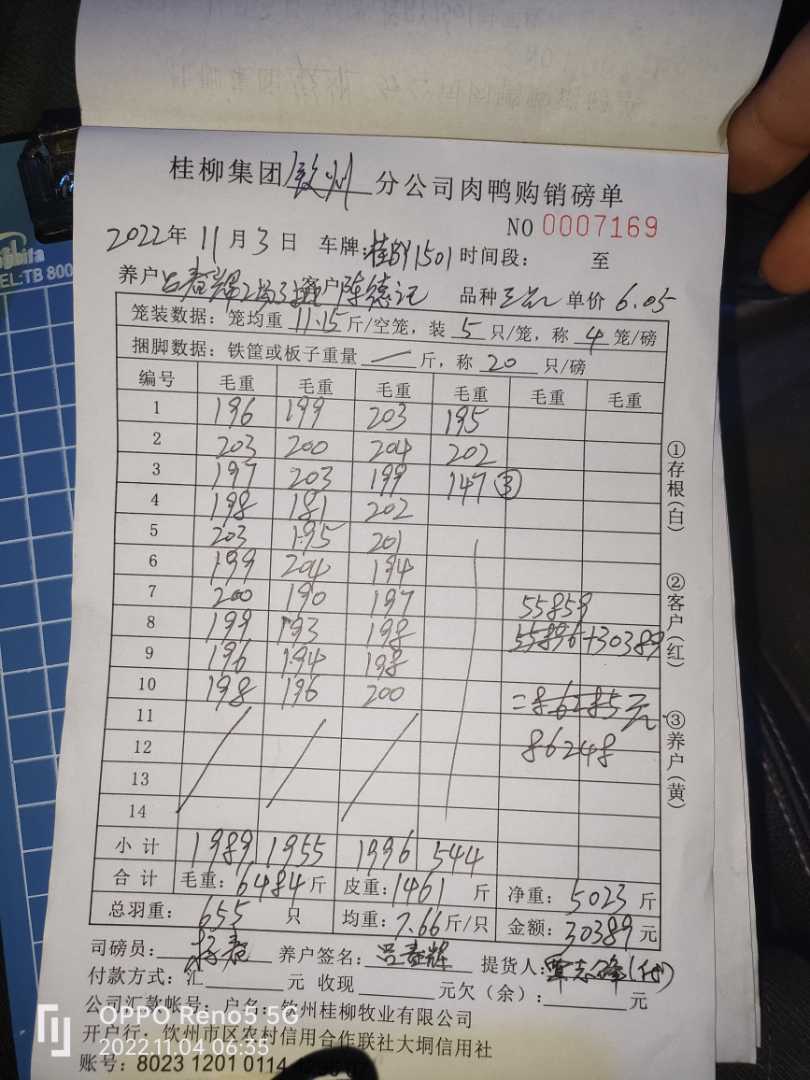 桂柳集团 钦州 分公司肉鸭购销磅单
NO 0007169
2022年 11月3日 车牌:桂 1501 时间段: 至
养户 吕春辉2场3 客户 陈德记 品种 单价 6.05
笼装数据: 笼均重 11.15 斤/空笼, 装 5 只/笼, 称 4 笼/磅
捆脚数据: 铁筐或板子重量 / 斤, 称 20 只/磅
编号 毛重 毛重 毛重 毛重 毛重 毛重
1 196 199 203 195
2 203 200 204 202
3 197 203 199 147 ③
4 198 181 202
5 203 195 201
6 199 204 194
7 200 190 197 55859
8 199 193 198 55896+30389
9 196 194 198
10 198 196 200 =86285元
11
12 86248
13
14
小计 1989 1955 1996 544
合计 毛重: 6484 斤 皮重: 1461 斤 净重: 5023 斤
总羽重: 655 只 均重: 7.66 斤/只 金额: 30389 元
司磅员: 养户签名: 吕春辉 提货人: 覃志锋(代)
付款方式: 汇 元 收现 元欠(余): 元
公司汇款帐号: 户名: 钦州桂柳牧业有限公司
开户行: 钦州市区农村信用合作联社大垌信用社
账号: 8023 1201 0114
①存根(白)
②客户(红)
③养户(黄)
EL:TB 800
OPPO Reno5 5G
2022.11.04 06:55